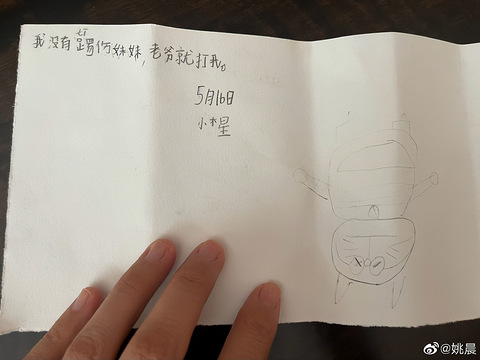 我没有踢伤妹妹,老爷就打我。
5月16日
小木星
@姚晨